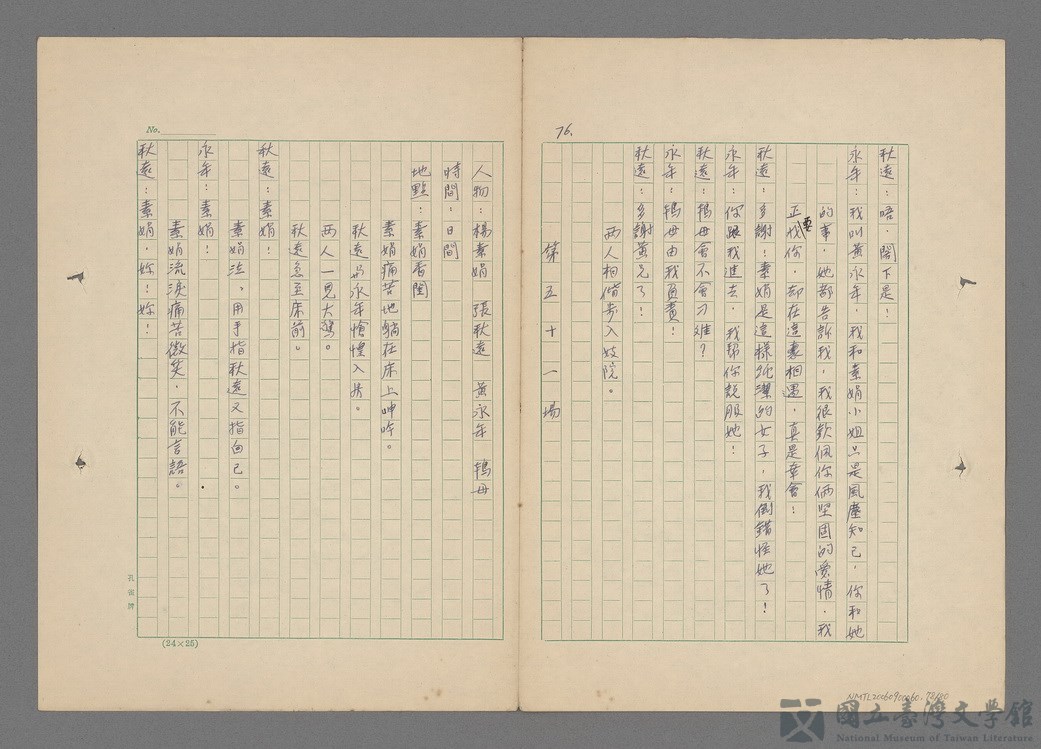 76.
秋遠：唔．閣下是！
永年：我叫黃永年，我和素娟小姐只是風塵知己，你和她
的事，她都告訴我，我很欽佩你倆堅固的愛情．我
正要找你，却在這裏相遇，真是幸會！
秋遠：多謝！素娟是這樣純潔的女子，我倒錯怪她了！
永年：你跟我進去，我幫你說服她！
秋遠：鴇母會不會刁难？
永年：鴇母由我負責！
秋遠：多謝黃兄了！
两人相偕步入妓院。
第五十一場
No.
人物：楊素娟 張秋遠 黃永年 鴇母
時間：日間
地點：素娟香閨
素娟痛苦地躺在床上呻吟。
秋遠与永年愴惶入房。
两人一見大驚。
秋遠急至床前。
秋遠：素娟！
素娟泣，用手指秋遠又指自己。
永年：素娟！
素娟流淚痛苦微笑．不能言語。
秋遠：素娟．妳！妳！
孔雀牌
(24×25)
NMTL20060900060.78/80
國立臺灣文學館
National Museum of Taiwan Literature